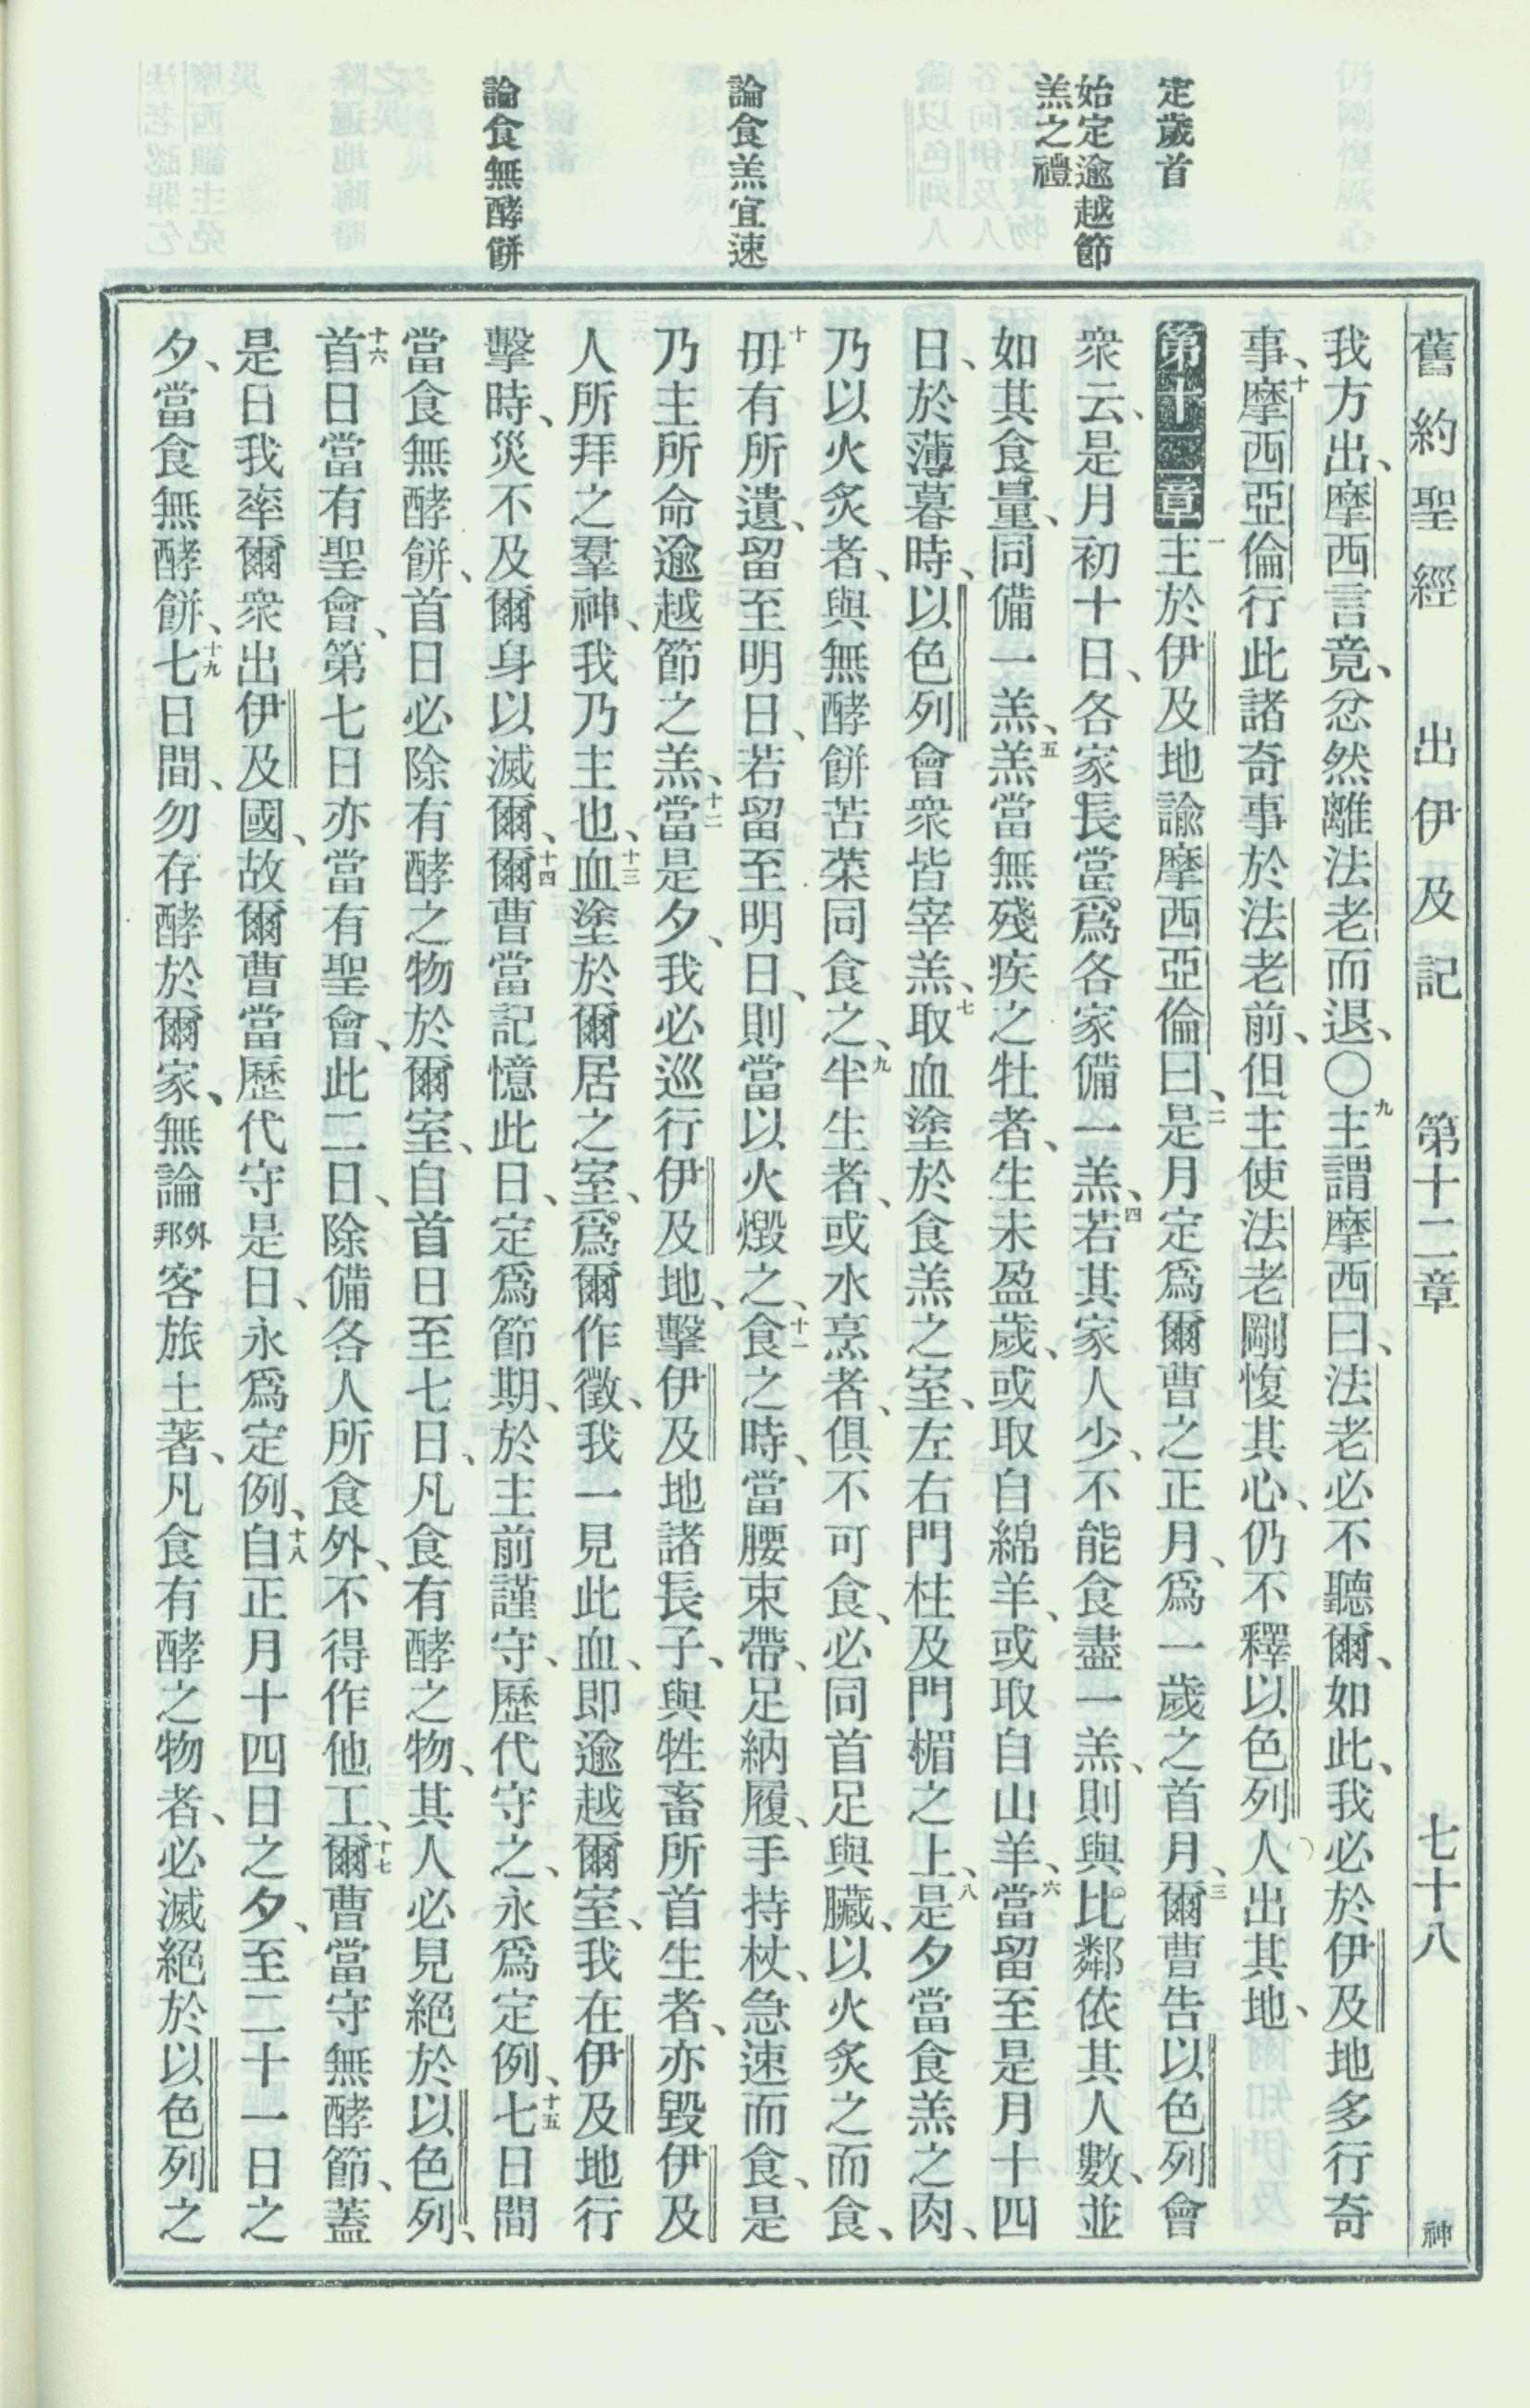 舊約聖經 出伊及記 第十二章 七十八 神
定歲首
始定逾越節
羔之禮
論食羔宜速
論食無酵餅
我方出、摩西言竟、忿然離法老而退、〇九主謂摩西曰、法老必不聽爾、如此、我必於伊及地多行奇
事、十摩西亞倫行此諸奇事於法老前、但主使法老剛愎其心、仍不釋以色列人出其地、
第十二章一主於伊及地諭摩西亞倫曰、二是月定爲爾曹之正月、爲一歲之首月、三爾曹告以色列會
衆云、是月初十日、各家長當爲各家備一羔、四若其家人少、不能食盡一羔、則與比鄰依其人數、並
如其食量、同備一羔、五羔當無殘疾之牡者、生未盈歲、或取自綿羊、或取自山羊、六當留至是月十四
日、於薄暮時、以色列會衆皆宰羔、七取血塗於食羔之室、左右門柱及門楣之上、八是夕當食羔之肉、
乃以火炙者、與無酵餅苦菜同食之、九半生者、或水烹者、俱不可食、必同首足與臟、以火炙之而食、
十毋有所遺、留至明日、若留至明日、則當以火燬之、十一食之時、當腰束帶、足納履、手持杖、急速而食、是
乃主所命逾越節之羔、十二當是夕、我必巡行伊及地、擊伊及地諸長子、與牲畜所首生者、亦毀伊及
人所拜之羣神、我乃主也、十三血塗於爾居之室、爲爾作徵、我一見此血、即逾越爾室、我在伊及地行
擊時、災不及爾身以滅爾、十四爾曹當記憶此日、定爲節期、於主前謹守、歷代守之、永爲定例、十五七日間
當食無酵餅、首日必除有酵之物於爾室、自首日至七日、凡食有酵之物、其人必見絕於以色列、
十六首日當有聖會、第七日亦當有聖會、此二日、除備各人所食外、不得作他工、十七爾曹當守無酵節、蓋
是日我率爾衆出伊及國、故爾曹當歷代守是日、永爲定例、十八自正月十四日之夕、至二十一日之
夕、當食無酵餅、十九七日間、勿存酵於爾家、無論外邦客旅土著、凡食有酵之物者、必滅絕於以色列之